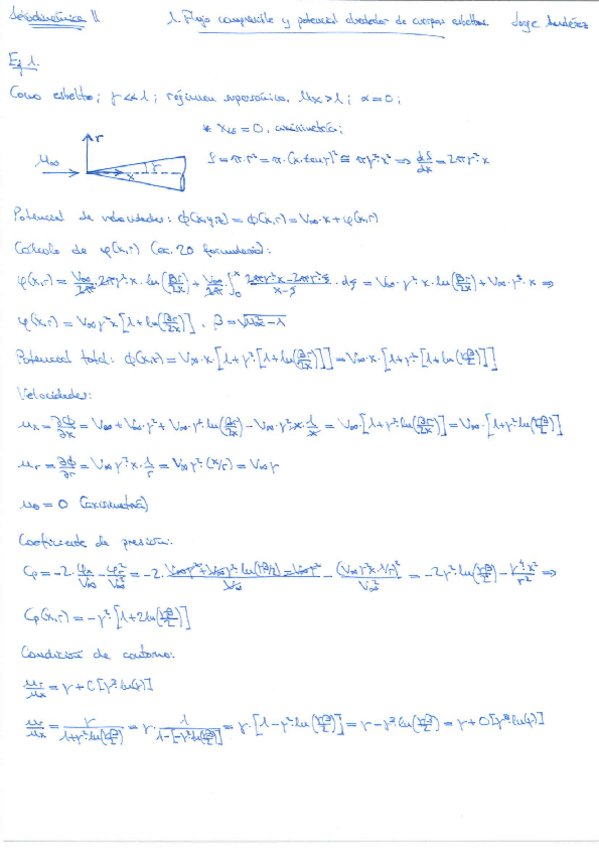 Aerodinámica II 1. Flujo compresible y potencial alrededor de cuerpos esbeltos Jorge
Ej 1.
Cono esbelto; γ<<1; régimen supersónico, M∞>1; α=0;
* = 0, axisimetría;
M∞ r x γ S = π·r² = π·(x·tanγ)² ≅ πγ²x² ⇒ dS/dx = 2πγ²x
Potencial de velocidades: ϕ(x,y,z) = ϕ(x,r) = V∞·x + φ(x,r)
Cálculo de φ(x,r) (ec. 20 formulario):
φ(x,r) = V∞/2π · 2πγ²x · ln(βr/2x) + V∞/2π · ∫₀ˣ (2πγ²x - 2πγ²ξ)/(x-ξ) · dξ = V∞·γ²·x·ln(βr/2x) + V∞·γ²·x ⇒
φ(x,r) = V∞γ²x[1+ln(βr/2x)], β = √(M∞²-1)
Potencial total: ϕ(x,r) = V∞·x·[1+γ²·[1+ln(βr/2x)]] = V∞·x·[1+γ²·[1+ln(γβ/2)]]
Velocidades:
u_x = ∂ϕ/∂x = V∞ + V∞·γ² + V∞·γ²·ln(βr/2x) - V∞·γ²·x·1/x = V∞·[1+γ²·ln(βr/2x)] = V∞·[1+γ²·ln(γβ/2)]
u_r = ∂ϕ/∂r = V∞γ²·x·1/r = V∞γ²·(x/r) = V∞γ
u_θ = 0 (axisimetría)
Coeficiente de presión:
Cp = -2·φx/V∞ - φr²/V∞² = -2·(V∞γ²+V∞γ²·ln(γβ/2)-V∞γ²)/V∞ - (V∞γ²x·1/r)²/V∞² = -2γ²·ln(γβ/2) - γ⁴x²/r² ⇒
Cp(x,r) = -γ²·[1+2ln(γβ/2)]
Condición de contorno:
u_r/u_x = γ + O[γ³·ln(γ)]
u_r/u_x = γ/(1+γ²·ln(γβ/2)) = γ·1/(1-[-γ²ln(γβ/2)]) = γ·[1-γ²·ln(γβ/2)] = γ-γ³·ln(γβ/2) = γ + O[γ³·ln(γ)]